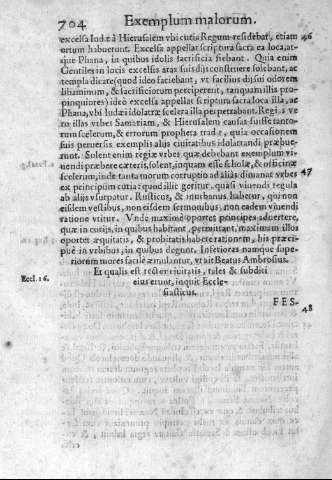 704 Exemplum malorum.
excelsa Iudęâ Hierusalem vbi cutis Regum residebat, etiam 46
ortum habuerunt. Excelsa appellat scriptura sacra ea loca, at-
que Phana, in quibus idolis sacrificia fiebant. Quia enim
Gentiles in locis excelsis aras suis dijs constituere solebant, ac
templa dicare (quod ideo faciebant, vt facilius dijsui odorem
libaminum, & sacrificiorum perciperent, tanquam illis pro-
pinquiores) ideò excelsa appellat scriptura sacra loca illa, ac
Phana, vbi Iudæi idolatræ scelera illa perpetrabant. Regias ve
ro illas vrbes Samariam, & Hierusalem causas fuisse tanto-
rum scelerum, & errorum propheta tradit, quia occasionem
suis peruersis exemplis alijs ciuitatibus idolatrandi præbue-
runt. Solent enim regiæ vrbes quæ debebant exemplum vi-
uendi præbere cæteris, solent, inquam esse scholæ, & officinæ
scelerum, inde tanta morum corruptio ad alias dimanat vrbes 47
ex principum curia: quod illic geritur, quasi viuendi regula
ab alijs vsurpatur. Rusticus, & inurbanus habetur, qui non
eisdem vestibus, non eisdem sermonibus, non eadem viuendi
ratione vtitur. Vnde maximè oportet principes aduertere,
quæ in curijs, in quibus habitant, permittant, maximam illos
oportet æquitatis, & probitatis habere rationem, his præci-
puè in vrbibus, in quibus degunt. Inferiores namque supe-
riorum mores facilè æmulantur, vt ait Beatus Ambrosius.
Eccl. 10. Et qualis est rector ciuitatis, tales & subditi
eius erunt, inquit Eccle-
siasticus.
FES-
48